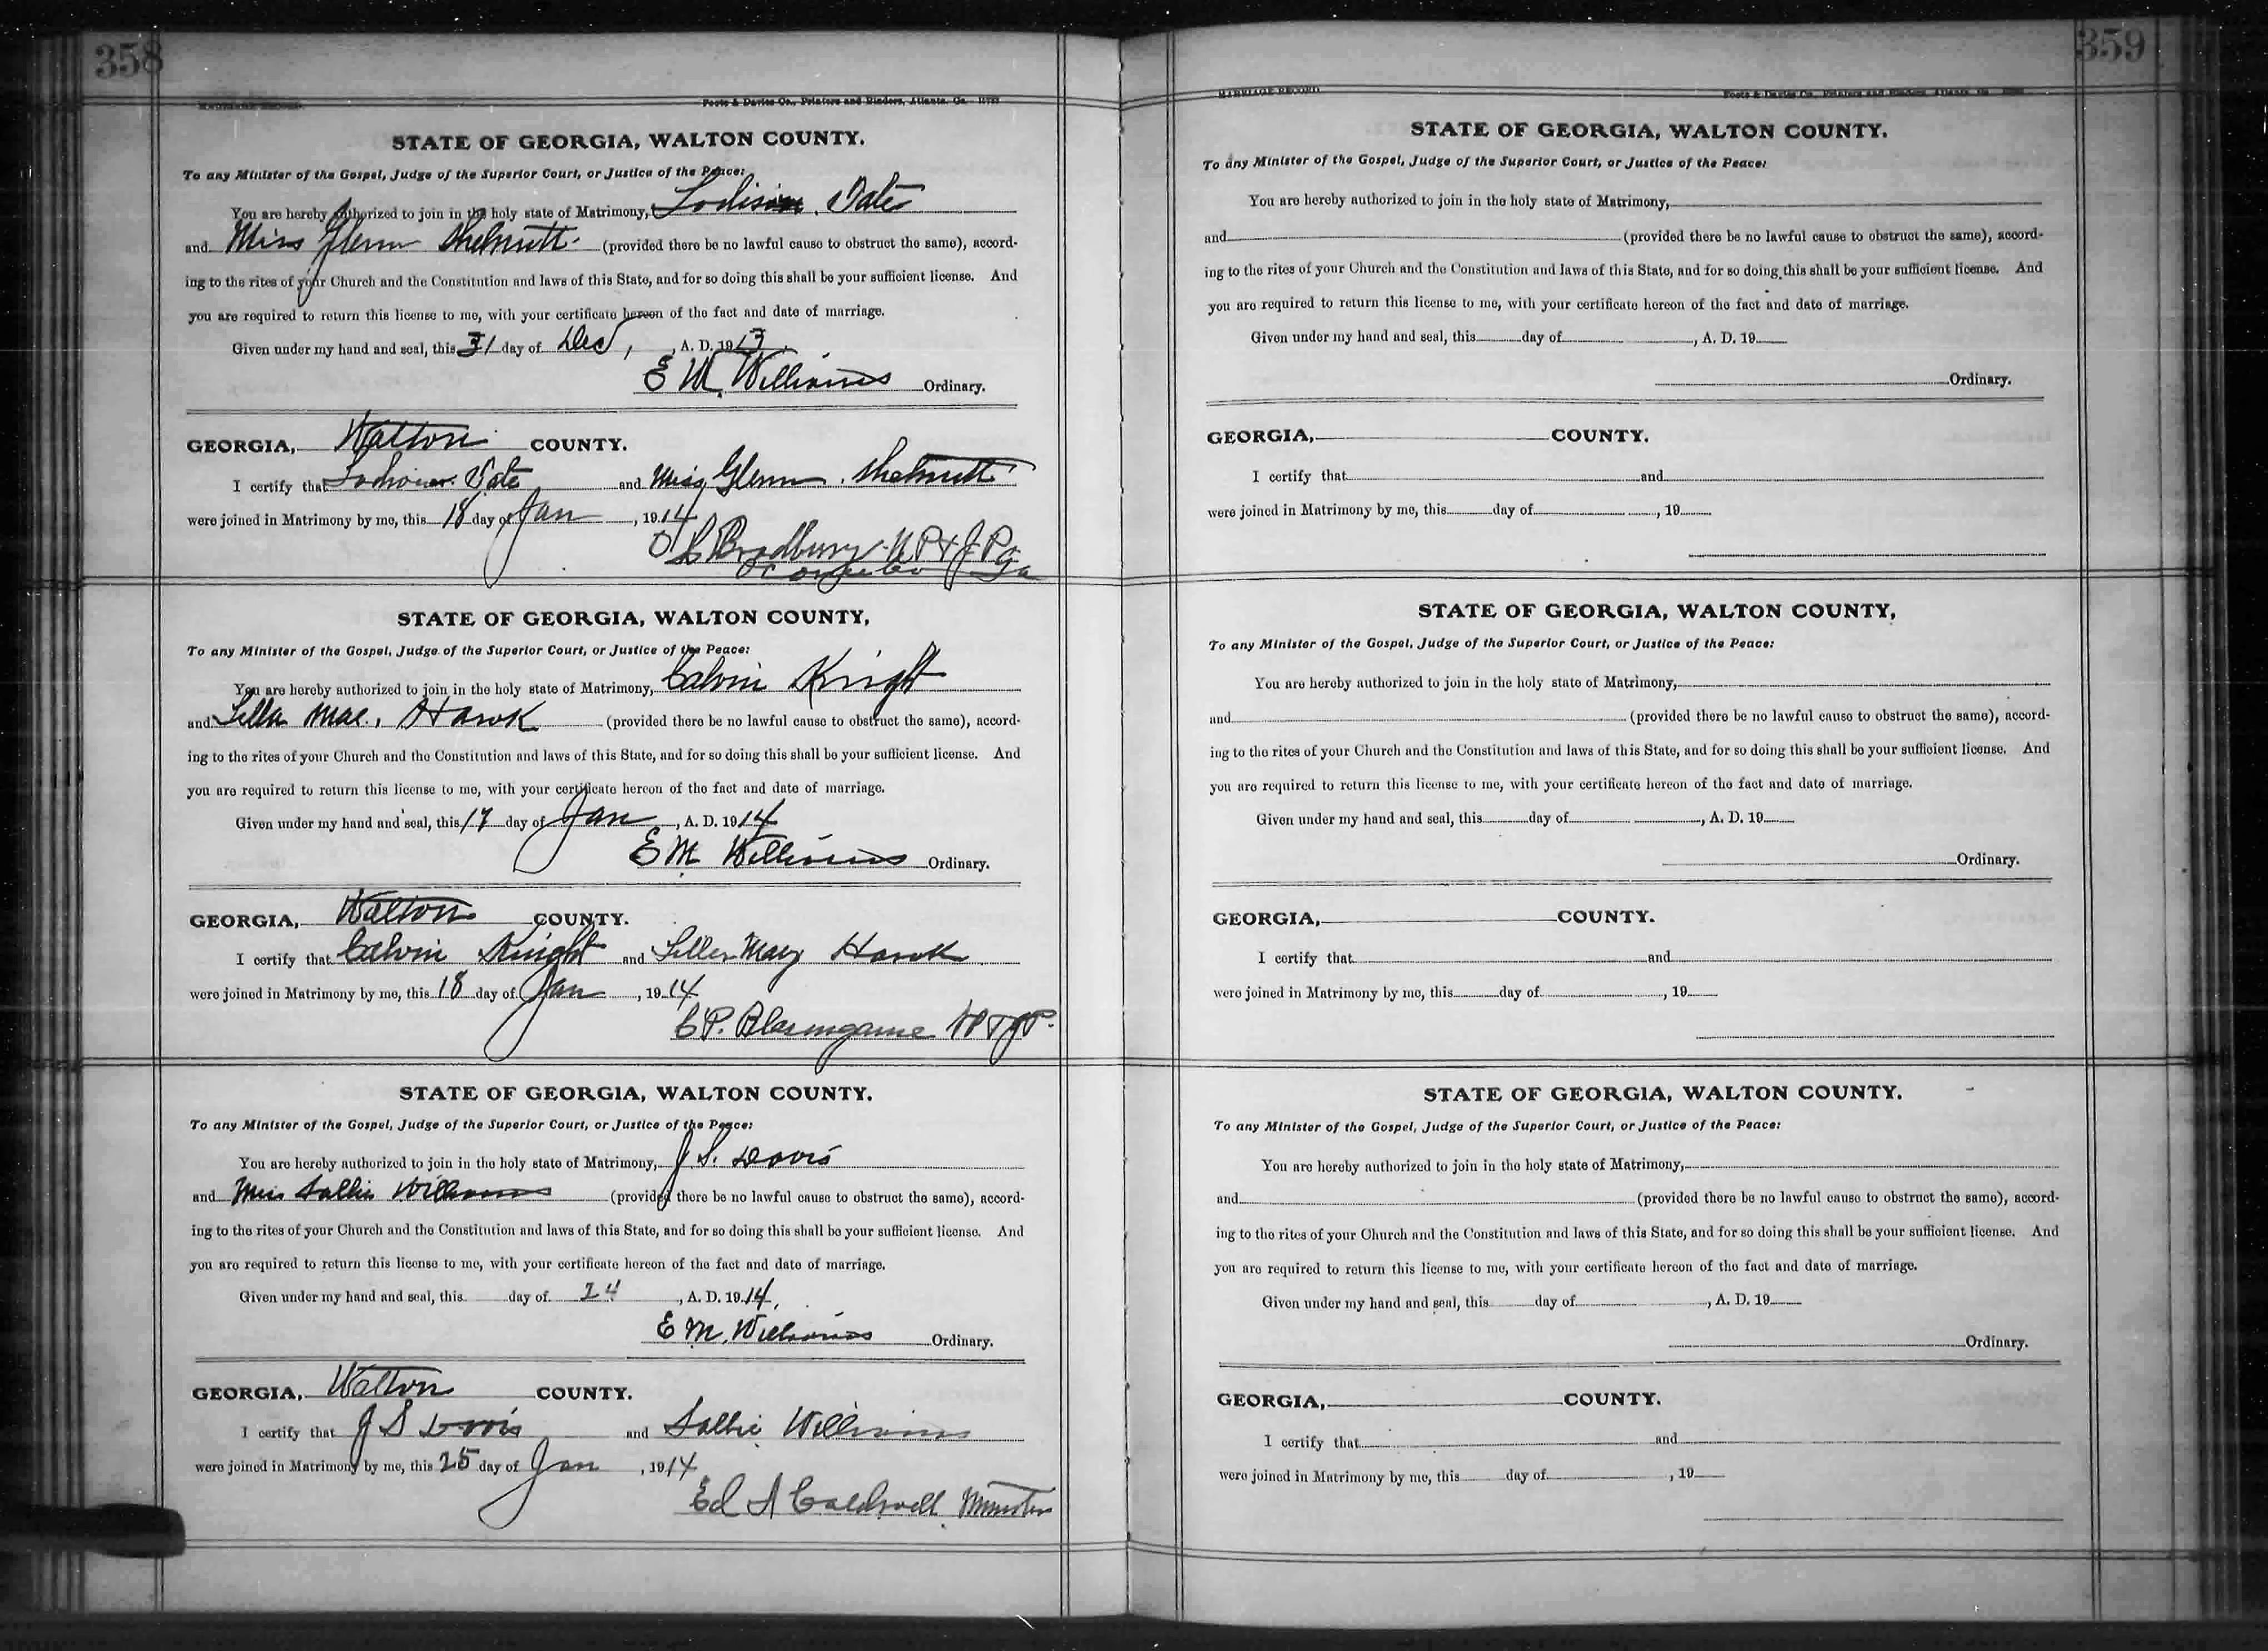 358
MARRIAGE RECORD. Foote & Davies Co., Printers and Binders, Atlanta, Ga.
STATE OF GEORGIA, WALTON COUNTY.
To any Minister of the Gospel, Judge of the Superior Court, or Justice of the Peace:
You are hereby authorized to join in the holy state of Matrimony,
and Miss Glenn Shelnutt (provided there be no lawful cause to obstruct the same), accord-
ing to the rites of your Church and the Constitution and laws of this State, and for so doing this shall be your sufficient license. And
you are required to return this license to me, with your certificate hereon of the fact and date of marriage.
Given under my hand and seal, this 31 day of Dec, , A. D. 1913.
E M. Williams Ordinary.
GEORGIA, Walton COUNTY.
I certify that and Miss Glenn Shelnutt
were joined in Matrimony by me, this 18 day of Jan , 1914
Bradbury N P & J P
Oconee Co Ga
STATE OF GEORGIA, WALTON COUNTY,
To any Minister of the Gospel, Judge of the Superior Court, or Justice of the Peace:
You are hereby authorized to join in the holy state of Matrimony, Calvin Knight
and Lilla Mae, Hawk (provided there be no lawful cause to obstruct the same), accord-
ing to the rites of your Church and the Constitution and laws of this State, and for so doing this shall be your sufficient license. And
you are required to return this license to me, with your certificate hereon of the fact and date of marriage.
Given under my hand and seal, this 17 day of Jan , A. D. 1914
E M Williams Ordinary.
GEORGIA, Walton COUNTY.
I certify that Calvin Knight and Liller May Hawk
were joined in Matrimony by me, this 18 day of Jan , 1914
C P.
STATE OF GEORGIA, WALTON COUNTY.
To any Minister of the Gospel, Judge of the Superior Court, or Justice of the Peace:
You are hereby authorized to join in the holy state of Matrimony, J S. Davis
and Miss Sallie Williams (provided there be no lawful cause to obstruct the same), accord-
ing to the rites of your Church and the Constitution and laws of this State, and for so doing this shall be your sufficient license. And
you are required to return this license to me, with your certificate hereon of the fact and date of marriage.
Given under my hand and seal, this day of 24 , A. D. 1914,
E M. Williams Ordinary.
GEORGIA, Walton COUNTY.
I certify that J S Davis and Sallie Williams
were joined in Matrimony by me, this 25 day of Jan , 1914
Ed A Caldwell Minister
359
MARRIAGE RECORD Foote & Davies Co., Printers and Binders, Atlanta, Ga.
STATE OF GEORGIA, WALTON COUNTY.
To any Minister of the Gospel, Judge of the Superior Court, or Justice of the Peace:
You are hereby authorized to join in the holy state of Matrimony,
and (provided there be no lawful cause to obstruct the same), accord-
ing to the rites of your Church and the Constitution and laws of this State, and for so doing this shall be your sufficient license. And
you are required to return this license to me, with your certificate hereon of the fact and date of marriage.
Given under my hand and seal, this day of , A. D. 19
Ordinary.
GEORGIA, COUNTY.
I certify that and
were joined in Matrimony by me, this day of , 19
STATE OF GEORGIA, WALTON COUNTY,
To any Minister of the Gospel, Judge of the Superior Court, or Justice of the Peace:
You are hereby authorized to join in the holy state of Matrimony,
and (provided there be no lawful cause to obstruct the same), accord-
ing to the rites of your Church and the Constitution and laws of this State, and for so doing this shall be your sufficient license. And
you are required to return this license to me, with your certificate hereon of the fact and date of marriage.
Given under my hand and seal, this day of , A. D. 19
Ordinary.
GEORGIA, COUNTY.
I certify that and
were joined in Matrimony by me, this day of , 19
STATE OF GEORGIA, WALTON COUNTY.
To any Minister of the Gospel, Judge of the Superior Court, or Justice of the Peace:
You are hereby authorized to join in the holy state of Matrimony,
and (provided there be no lawful cause to obstruct the same), accord-
ing to the rites of your Church and the Constitution and laws of this State, and for so doing this shall be your sufficient license. And
you are required to return this license to me, with your certificate hereon of the fact and date of marriage.
Given under my hand and seal, this day of , A. D. 19
Ordinary.
GEORGIA, COUNTY.
I certify that and
were joined in Matrimony by me, this day of , 19